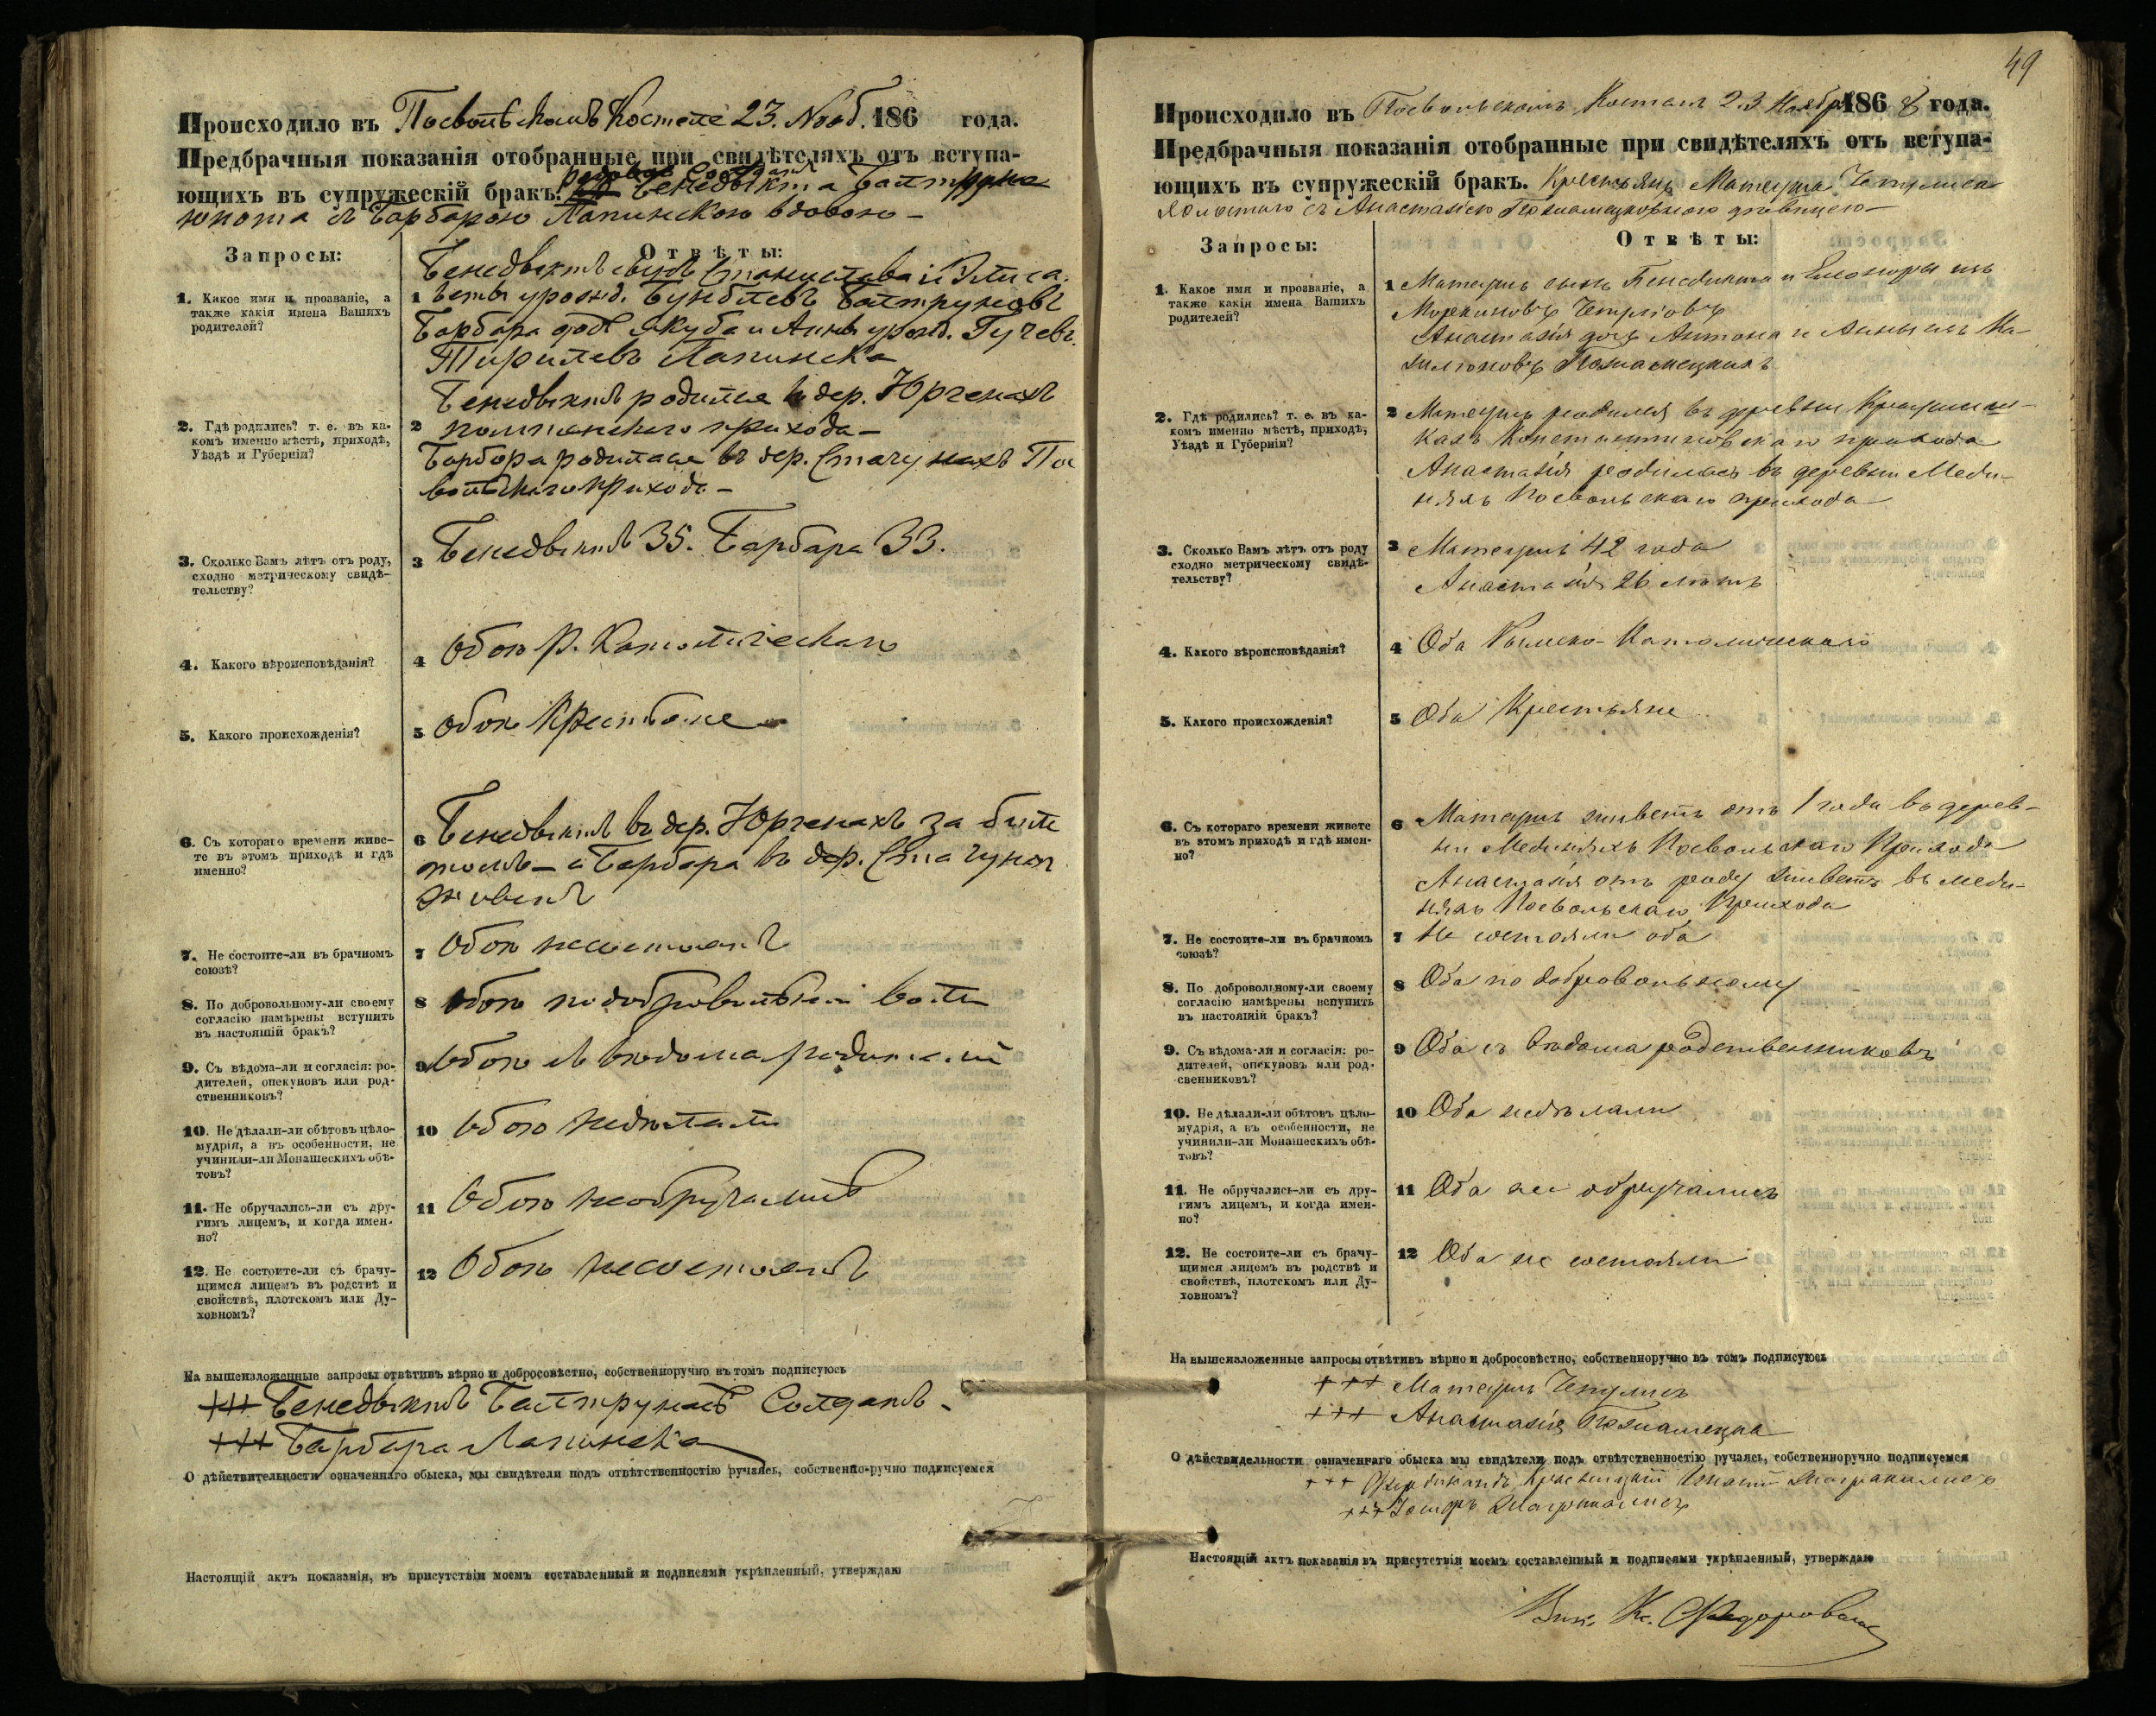 Происходило въ Посвольскомъ Костелѣ 23. Нояб. 186 года.
Предбрачныя показанія отобранные при свидѣтеляхъ отъ вступа-
ющихъ въ супружескій бракъ. рядовая Солдата Бенедыкта Балтруна
юнота съ Барбарою Лапинскою вдовою –
Запросы:
Отвѣты:
1. Какое имя и прозваніе, а также какія имена Вашихъ родителей?
1 Бенедыктъ сынъ Станислава и Элиса-
беты урожд. Бунблевъ Балтруновъ
Барбара дочь Якуба и Анны урожд. Гучевъ
Лапинска
2. Гдѣ родились? т. е. въ ка-
комъ именно мѣстѣ, приходѣ,
Уѣздѣ и Губерніи?
2 Бенедыктъ родился въ дер. Юргенахъ
прихода –
Барбора родилася въ дер. Стачунахъ По
вольскаго прихода –
3. Сколько Вамъ лѣтъ отъ роду,
сходно метрическому свидѣ-
тельству?
3 Бенедыктъ 35. Барбара 33.
4. Какого вѣроисповѣданія?
4 Обое Р. Католическаго
5. Какого происхожденія?
5 обое Крестьяне
6. Съ котораго времени живе-
те въ этомъ приходѣ и гдѣ
именно?
6 Бенедыктъ въ дер. Юргенахъ за
– а Барбара въ дер. Стачунах
живетъ
7. Не состоите-ли въ брачномъ
союзѣ?
7 Обое несостоятъ
8. По добровольному-ли своему
согласію намѣрены вступить
въ настоящій бракъ?
8 Обое по добровольной воли
9. Съ вѣдома-ли и согласія: ро-
дителей, опекуновъ или род-
ственниковъ?
9 Обое съ вѣдома родителей
10. Не дѣлали-ли обѣтовъ цѣло-
мудрія, а въ особенности, не
учинили-ли Монашескихъ обѣ-
товъ?
10 Обое недѣлали
11. Не обручались-ли съ дру-
гимъ лицемъ, и когда имен-
но?
11 Обое необручались
12. Не состоите-ли съ брачу-
щимся лицемъ въ родствѣ и
свойствѣ, плотскомъ или Ду-
ховномъ?
12 Обое несостоятъ
На вышеизложенные запросы отвѣтивъ вѣрно и добросовѣстно, собственноручно въ томъ подписуюсь
+++ Бенедыктъ Балтрунасъ Солдатъ –
+++ Барбара Лапинска
О дѣйствительности означеннаго обыска, мы свидѣтели подъ отвѣтственностію ручаясь, собственно-ручно подписуемся
Настоящій актъ показанія, въ присутствіи моемъ составленный и подписями укрѣпленный, утверждаю
49
Происходило въ Посвольскомъ Костелѣ 23 Ноября 1868 года.
Предбрачныя показанія отобранные при свидѣтеляхъ отъ вступа-
ющихъ въ супружескій бракъ. Крестьянъ Матеуша Чепулиса
холостаго съ Анастазіею Познамецковною дѣвицею –
Запросы:
Отвѣты:
1. Какое имя и прозваніе, а
также какія имена Вашихъ
родителей?
1 Матеушъ сынъ Бенедикта и Елеоноры изъ
Моркуновъ Чепулюовъ
Анастазія дочь Антона и Анны изъ Ка-
зилюновъ Познамецкихъ
2. Гдѣ родились? т. е. въ ка-
комъ именно мѣстѣ, приходѣ,
Уѣздѣ и Губерніи?
2 Матеушъ родился въ деревни
Константиновскаго прихода
Анастазія родилась въ деревни Меди-
няхъ Посвольскаго прихода
3. Сколько Вамъ лѣтъ отъ роду
сходно метрическому свидѣ-
тельству?
3 Матеушъ 42 года
Анастазія 26 лѣтъ
4. Какого вѣроисповѣданія?
4 Оба Римско-Католическаго
5. Какого происхожденія?
5 Оба Крестьяне
6. Съ котораго времени живете
въ этомъ приходѣ и гдѣ имен-
но?
6 Матеушъ живетъ отъ 1 года въ дерев-
ни Мединяхъ Посвольскаго Прихода
Анастазія отъ роду живетъ въ Меди-
няхъ Посвольскаго Прихода
7. Не состоите-ли въ брачномъ
союзѣ?
7 Не состояли оба
8. По добровольному-ли своему
согласію намѣрены вступить
въ настоящій бракъ?
8 Оба по добровольному
9. Съ вѣдома-ли и согласія: ро-
дителей, опекуновъ или род-
свенниковъ?
9 Оба съ вѣдома родственниковъ
10. Не дѣлали-ли обѣтовъ цѣло-
мудрія, а въ особенности, не
учинили-ли Монашескихъ обѣ-
товъ?
10 Оба недѣлали
11. Не обручались-ли съ дру-
гимъ лицемъ, и когда имен-
но?
11 Оба не обручались
12. Не состоите-ли съ брачу-
щимся лицемъ въ родствѣ и
свойствѣ, плотскомъ или Ду-
ховномъ?
12 Оба не состояли
На вышеизложенные запросы отвѣтивъ вѣрно и добросовѣстно, собственноручно въ томъ подписуюсь
+++ Матеушъ Чепулисъ
+++ Анастазія Познамецка
О дѣйствидельности означеннаго обыска мы свидѣтели подъ отвѣтственностію ручаясь, собственноручно подписуемся
+++ Фердинандъ Игнатій
+++ Іосифъ
Настоящій актъ показанія въ присутствіи моемъ составленный и подписями укрѣпленный, утверждаю
Вик. Кс. Федоровичъ